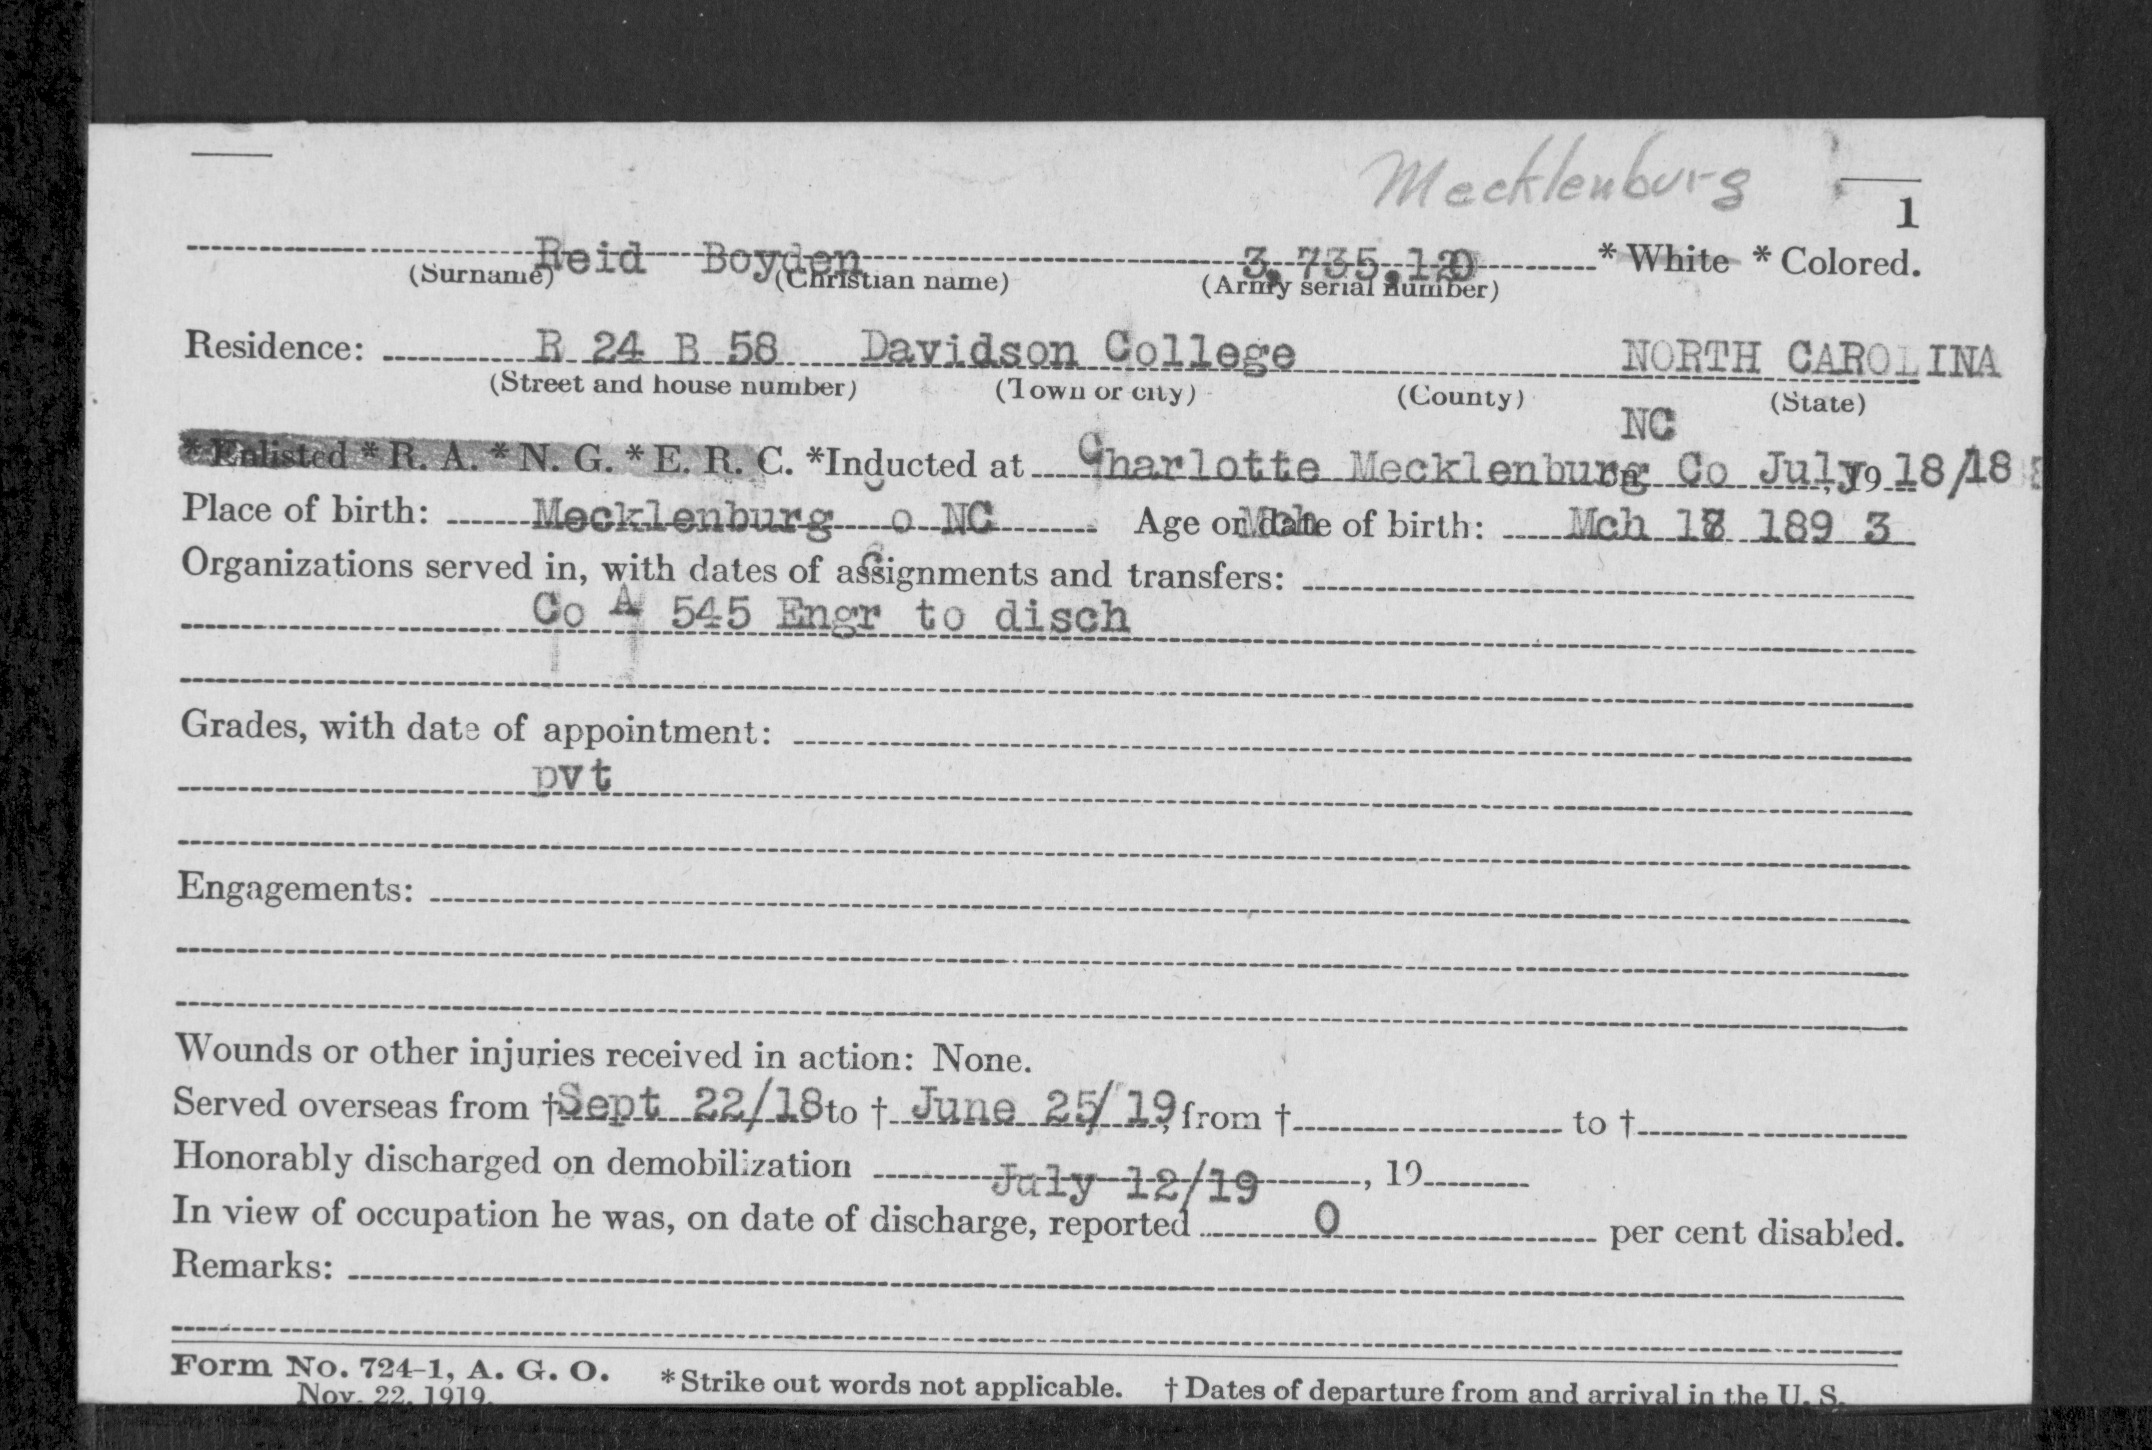 Mecklenburg
1
Reid Boyden 3,735,120 * White * Colored.
(Surname) (Christian name) (Army serial number)
Residence: R 24 B 58 Davidson College NORTH CAROLINA
(Street and house number) (Town or city) (County) (State)
NC
* Enlisted * R. A. * N. G. * E. R. C. *Inducted at Charlotte Mecklenburg Co on July, 19 18/18
Place of birth: Mecklenburg o NC Age or date of birth: Mch 189 3
Organizations served in, with dates of assignments and transfers:
Co A 545 Engr to disch
Grades, with date of appointment:
pvt
Engagements:
Wounds or other injuries received in action: None.
Served overseas from † Sept 22/18 to † June 25/19, from † to †
Honorably discharged on demobilization July 12/19, 19
In view of occupation he was, on date of discharge, reported 0 per cent disabled.
Remarks:
Form No. 724-1, A. G. O. * Strike out words not applicable. † Dates of departure from and arrival in the U. S.
Nov. 22, 1919.